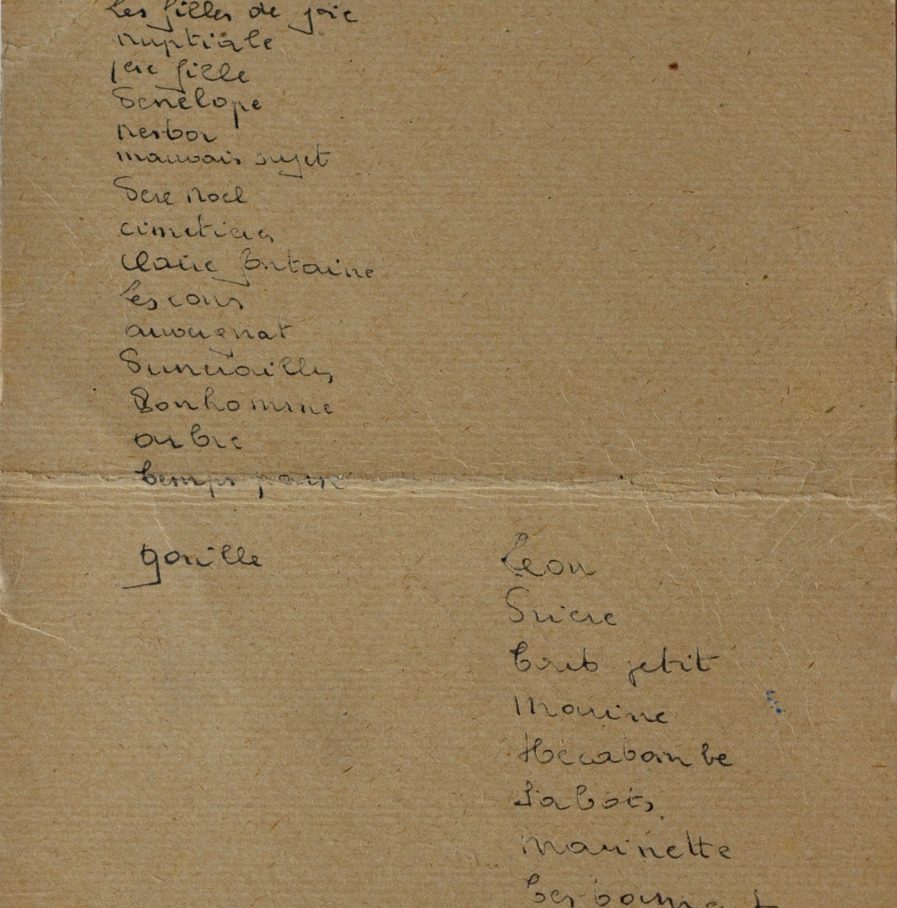 Les filles de joie
nuptiale
1ere fille
Penelope
nestor
mauvais sujet
Pere Noel
cimetieres
Claire fontaine
Les cons
auvergnat
Funerailles
Bonhomme
arbre
temps passé
gorille
Leon
Priere
tout petit
Marine
Hecatombe
Sabots
Marinette